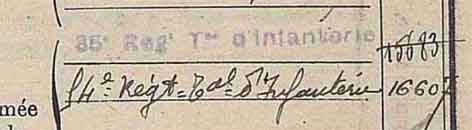 85e Regt Tal d'Infanterie 15683
84e Régt = Tal = d'Infanterie 16607
mée